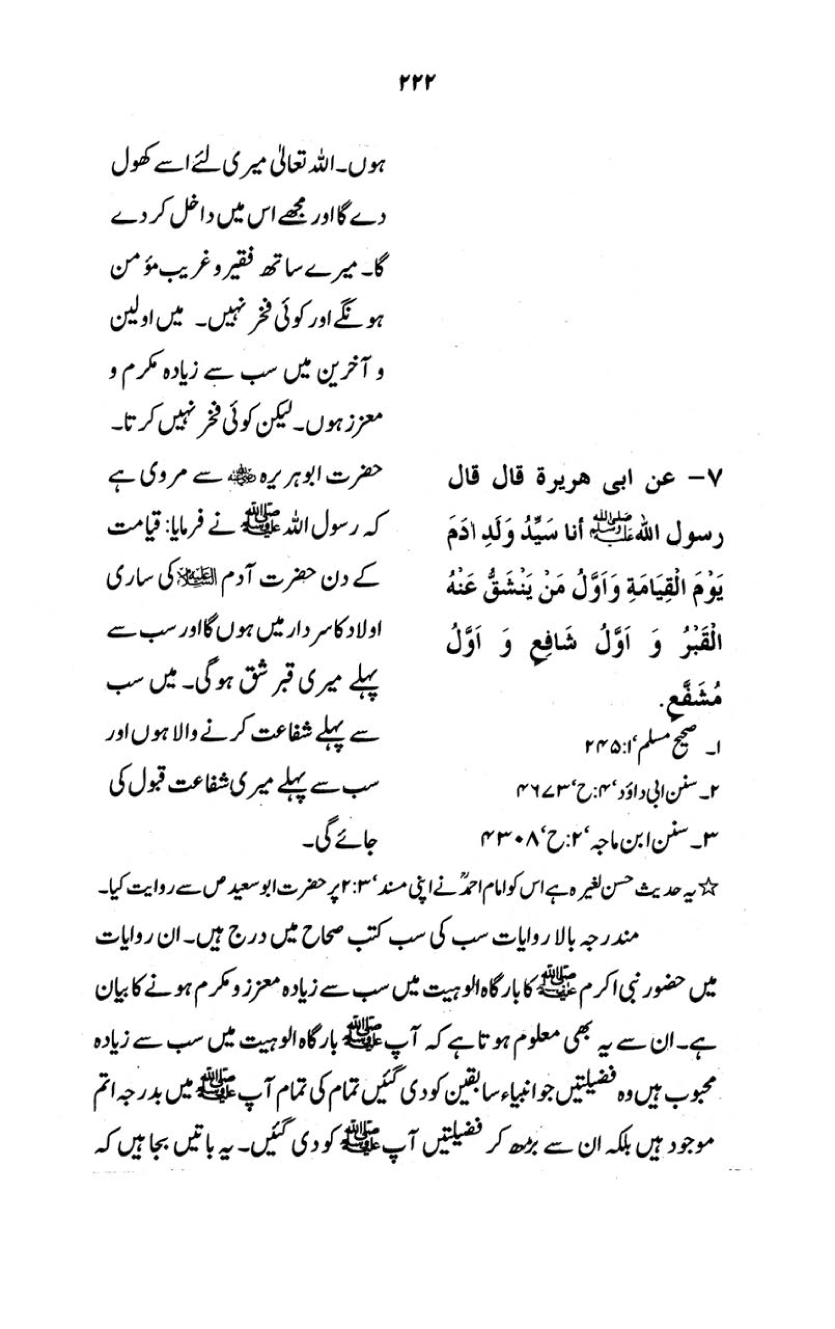 ۲۲۲
ہوں۔ اللہ تعالیٰ میری لئے اسے کھول
دے گا اور مجھے اس میں داخل کر دے
گا۔ میرے ساتھ فقیر و غریب مؤمن
ہونگے اور کوئی فخر نہیں۔ میں اولین
و آخرین میں سب سے زیادہ مکرم و
معزز ہوں۔ لیکن کوئی فخر نہیں کرتا۔
۷- عن ابی هریرة قال قال
رسول الله ﷺ أنا سَیِّدُ وَلَدِ اٰدَمَ
یَوْمَ الْقِیَامَةِ وَاَوَّلُ مَنْ یَنْشَقُّ عَنْهُ
الْقَبْرُ وَ اَوَّلُ شَافِعٍ وَ اَوَّلُ
مُشَفَّعٍ.
۱۔ صحیح مسلم،۱: ۲۴۵
۲۔ سنن ابی داؤد،۴: ح،۴۶۷۳
۳۔ سنن ابن ماجہ،۲: ح،۴۳۰۸
حضرت ابوہریرہ ؓ سے مروی ہے
کہ رسول اللہ ﷺ نے فرمایا: قیامت
کے دن حضرت آدم علیہ السلام کی ساری
اولاد کا سردار میں ہوں گا اور سب سے
پہلے میری قبر شق ہوگی۔ میں سب
سے پہلے شفاعت کرنے والا ہوں اور
سب سے پہلے میری شفاعت قبول کی
جائے گی۔
☆ یہ حدیث حسن لغیرہ ہے اس کو امام احمدؒ نے اپنی مسند،۳: ۲ پر حضرت ابو سعید ص سے روایت کیا۔
مندرجہ بالا روایات سب کی سب کتب صحاح میں درج ہیں۔ ان روایات
میں حضور نبی اکرم ﷺ کا بارگاہ الوہیت میں سب سے زیادہ معزز و مکرم ہونے کا بیان
ہے۔ ان سے یہ بھی معلوم ہوتا ہے کہ آپ ﷺ بارگاہ الوہیت میں سب سے زیادہ
محبوب ہیں وہ فضیلتیں جو انبیاء سابقین کو دی گئیں تمام کی تمام آپ ﷺ میں بدرجہ اتم
موجود ہیں بلکہ ان سے بڑھ کر فضیلتیں آپ ﷺ کو دی گئیں۔ یہ باتیں بجا ہیں کہ